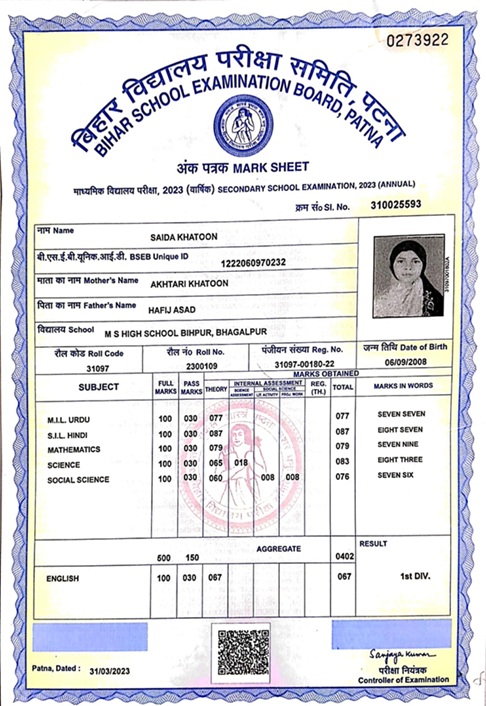 0273922
बिहार विद्यालय परीक्षा समिति, पटना
BIHAR SCHOOL EXAMINATION BOARD, PATNA
अंक पत्रक MARK SHEET
माध्यमिक विद्यालय परीक्षा, 2023 (वार्षिक) SECONDARY SCHOOL EXAMINATION, 2023 (ANNUAL)
क्रम सं० Sl. No. 310025593
नाम Name SAIDA KHATOON
बी.एस.ई.बी.यूनिक.आई.डी. BSEB Unique ID 1222060970232
माता का नाम Mother's Name AKHTARI KHATOON
पिता का नाम Father's Name HAFIJ ASAD
विद्यालय School M S HIGH SCHOOL BIHPUR, BHAGALPUR
रौल कोड Roll Code रौल नं० Roll No. पंजीयन संख्या Reg. No. जन्म तिथि Date of Birth
31097 2300109 31097-00180-22 06/09/2008
MARKS OBTAINED
SUBJECT FULL MARKS PASS MARKS THEORY INTERNAL ASSESSMENT REG. (TH.) TOTAL MARKS IN WORDS
SCIENCE ASSESSMENT SOCIAL SCIENCE LIT ACTIVITY PROJ WORK
M.I.L. URDU 100 030 077 077 SEVEN SEVEN
S.I.L. HINDI 100 030 087 087 EIGHT SEVEN
MATHEMATICS 100 030 079 079 SEVEN NINE
SCIENCE 100 030 065 018 083 EIGHT THREE
SOCIAL SCIENCE 100 030 060 008 008 076 SEVEN SIX
500 150 AGGREGATE 0402 RESULT
ENGLISH 100 030 067 067 1st DIV.
Patna, Dated : 31/03/2023
Sanjaya Kumar
परीक्षा नियंत्रक
Controller of Examination